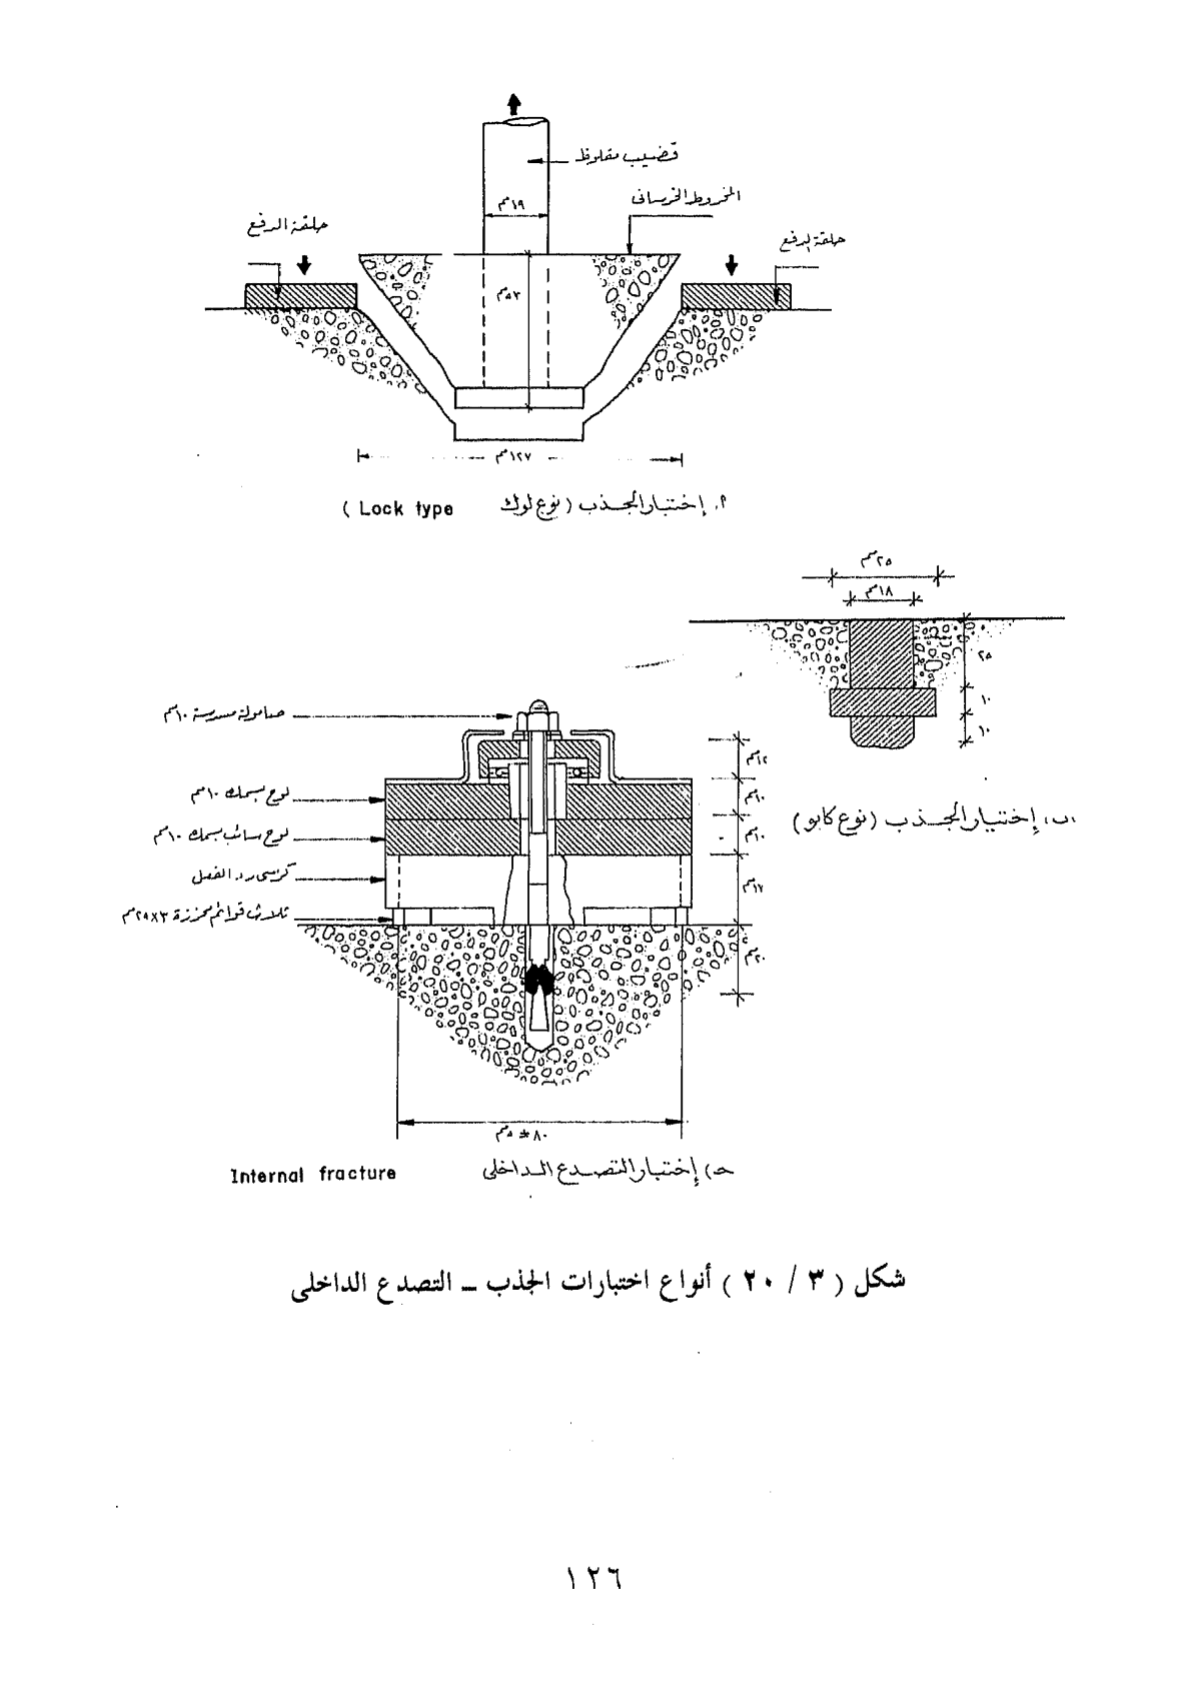 قضيب مقلوظ
المخروط الخرسانى
١٩مم
حلقة الدفع
حلقة الدفع
٥٣مم
١٢٧مم
أ. إختبار الجذب (نوع لوك Lock type )
٢٥مم
١٨مم
٢٥
١٠
١٠
ب، إختيار الجذب (نوع كابو)
صامولة مسدسة ١٠مم
لوح بسمك ١٠مم
لوح سائب بسمك ١٠مم
كرسى رد الفعل
ثلاث قوائم محززة ٣×٢٥مم
١٢مم
١٠مم
١٠مم
١٧مم
٢٠مم
٨٠ ± ٥مم
حـ) إختبار التصدع الداخلى Internal fracture
شكل ( ٣ / ٢٠ ) أنواع اختبارات الجذب ــ التصدع الداخلى
١٢٦